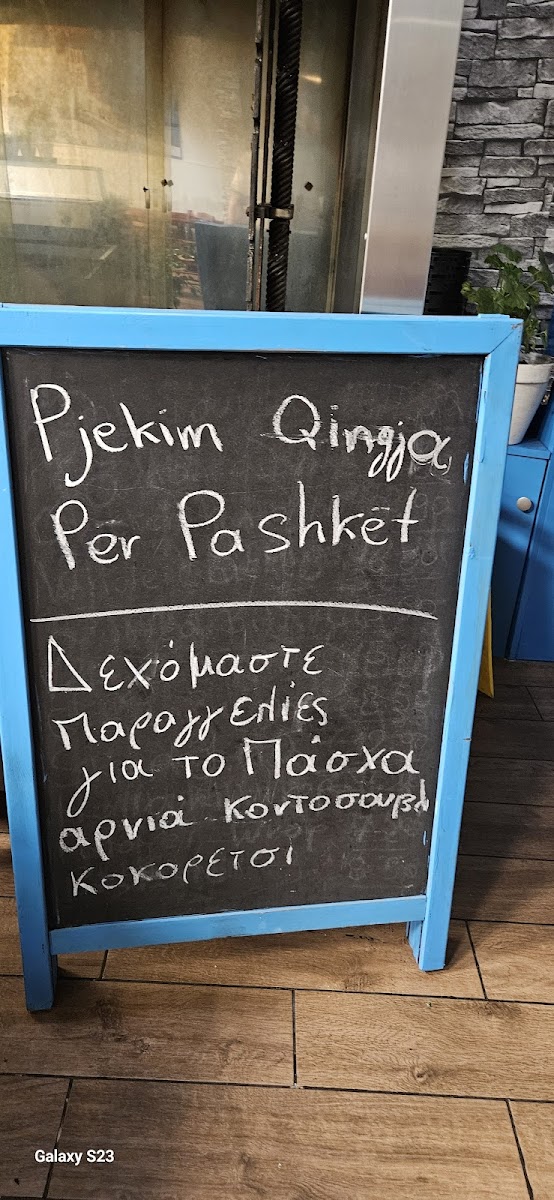 Pjekim Qingja
Per Pashkët
Δεχόμαστε
παραγγελίες
για το Πάσχα
αρνιά κοντοσουβλι
κοκορετσι
Galaxy S23